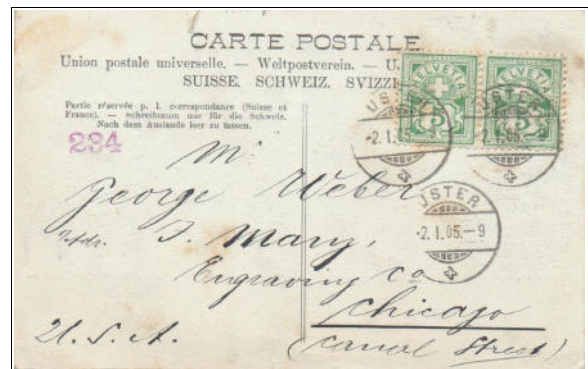 CARTE POSTALE
Union postale universelle. — Weltpostverein. — U.
SUISSE. SCHWEIZ. SVIZZ
Partie réservée p. l. correspondance (Suisse et
France). — schreibraum nur für die Schweiz.
Nach dem Auslande leer zu lassen.
234
HELVETIA
5
HELVETIA
5
USTER
-2.1.05.-9
USTER
-2.1.05.-9
USTER
-2.1.05.-9
Mr
George Weber
Adr. J. Many,
Engraving Co
Chicago
(Canal Street)
U.S.A.